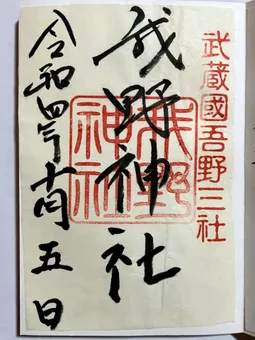 武蔵國吾野三社
我野神社
我野神社
令和四年十月五日